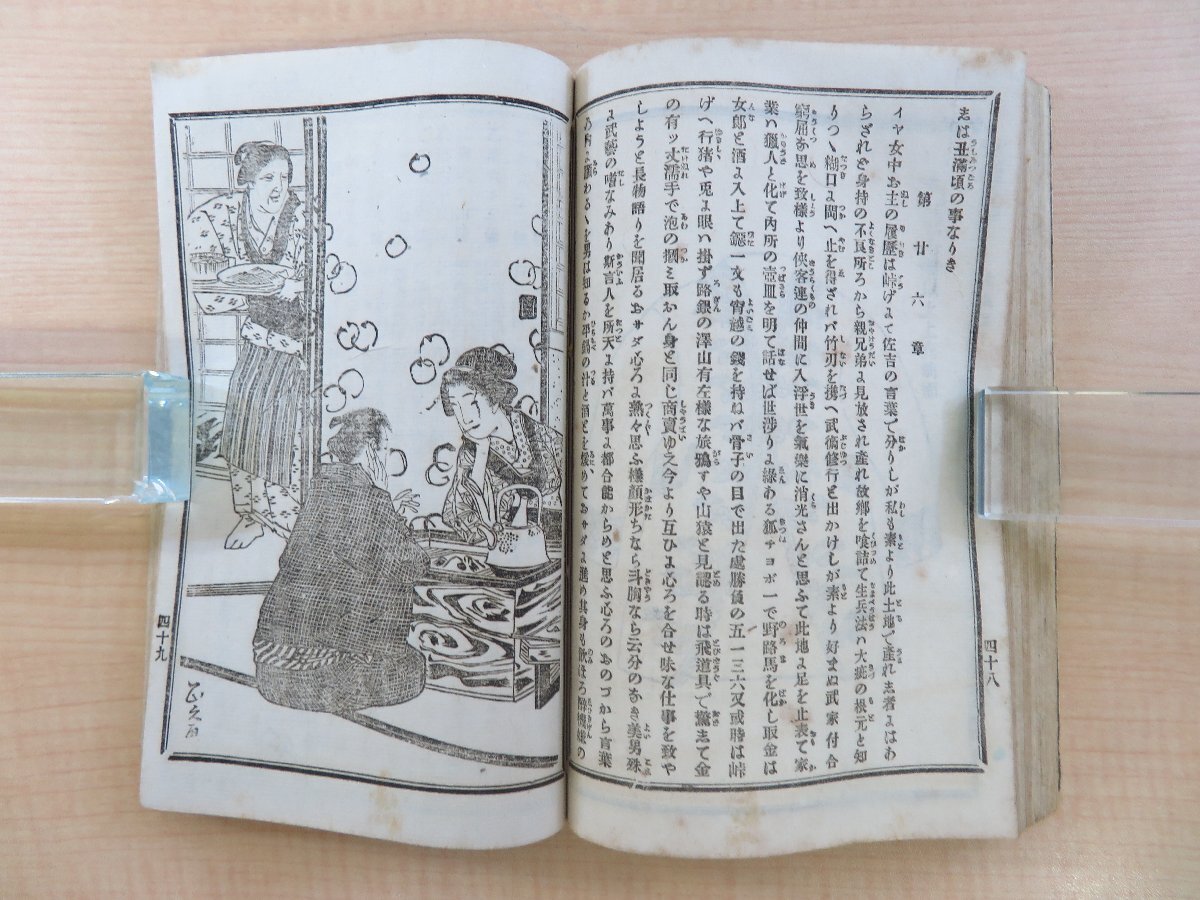 志は丑満頃の事なりき
第廿六章
イヤ女中お主の履歴は峠げよて佐吉の言葉で分りしが私も素より此土地で産れ志者よはわ
らざれど身持の不良所ろから親兄弟よ見放され産れ故郷を喰詰て生兵法ハ大疵の根元と知
りつゝ糊口よ間へ止を得ざれバ竹刃を携へ武術修行と出かけしが素より好まぬ武家付合
窮屈な思を致様より侠客連の仲間に入浮世を氣樂に消光さんと思ふて此地よ足を止表て家
業ハ獵人と化て内所の壺皿を明て話せば世渉りよ緣ある狐サヨボ一で野路馬を化し取金は
女郎と酒よ入上て鐚一文も宵越の錢を持ねバ骨子の目で出た虚勝負の五一三六又或時は峠
げへ行猪や兎よ眼ハ掛ず路銀の澤山有左樣な旅鴉すや山猿と見認る時は飛道具で黨志て金
の有ッ丈濡手で泡の摑ミ取おん身と同じ商賣ゆえ今より互ひよ心ろを合せ味な仕事を致や
しようと長物語りを聞居るおサダ心ろよ熟々思ふ樣顔形ちなら斗胸なら云分のなき美男殊
よ武藝の嗜なみあり斯言人を所天よ持バ萬事よ都合能からめと思ふ心ろのおのづから言葉
の酒とを緩めておサダよ進め其身も飲ほろ醉機嫌の
四十八
四十九